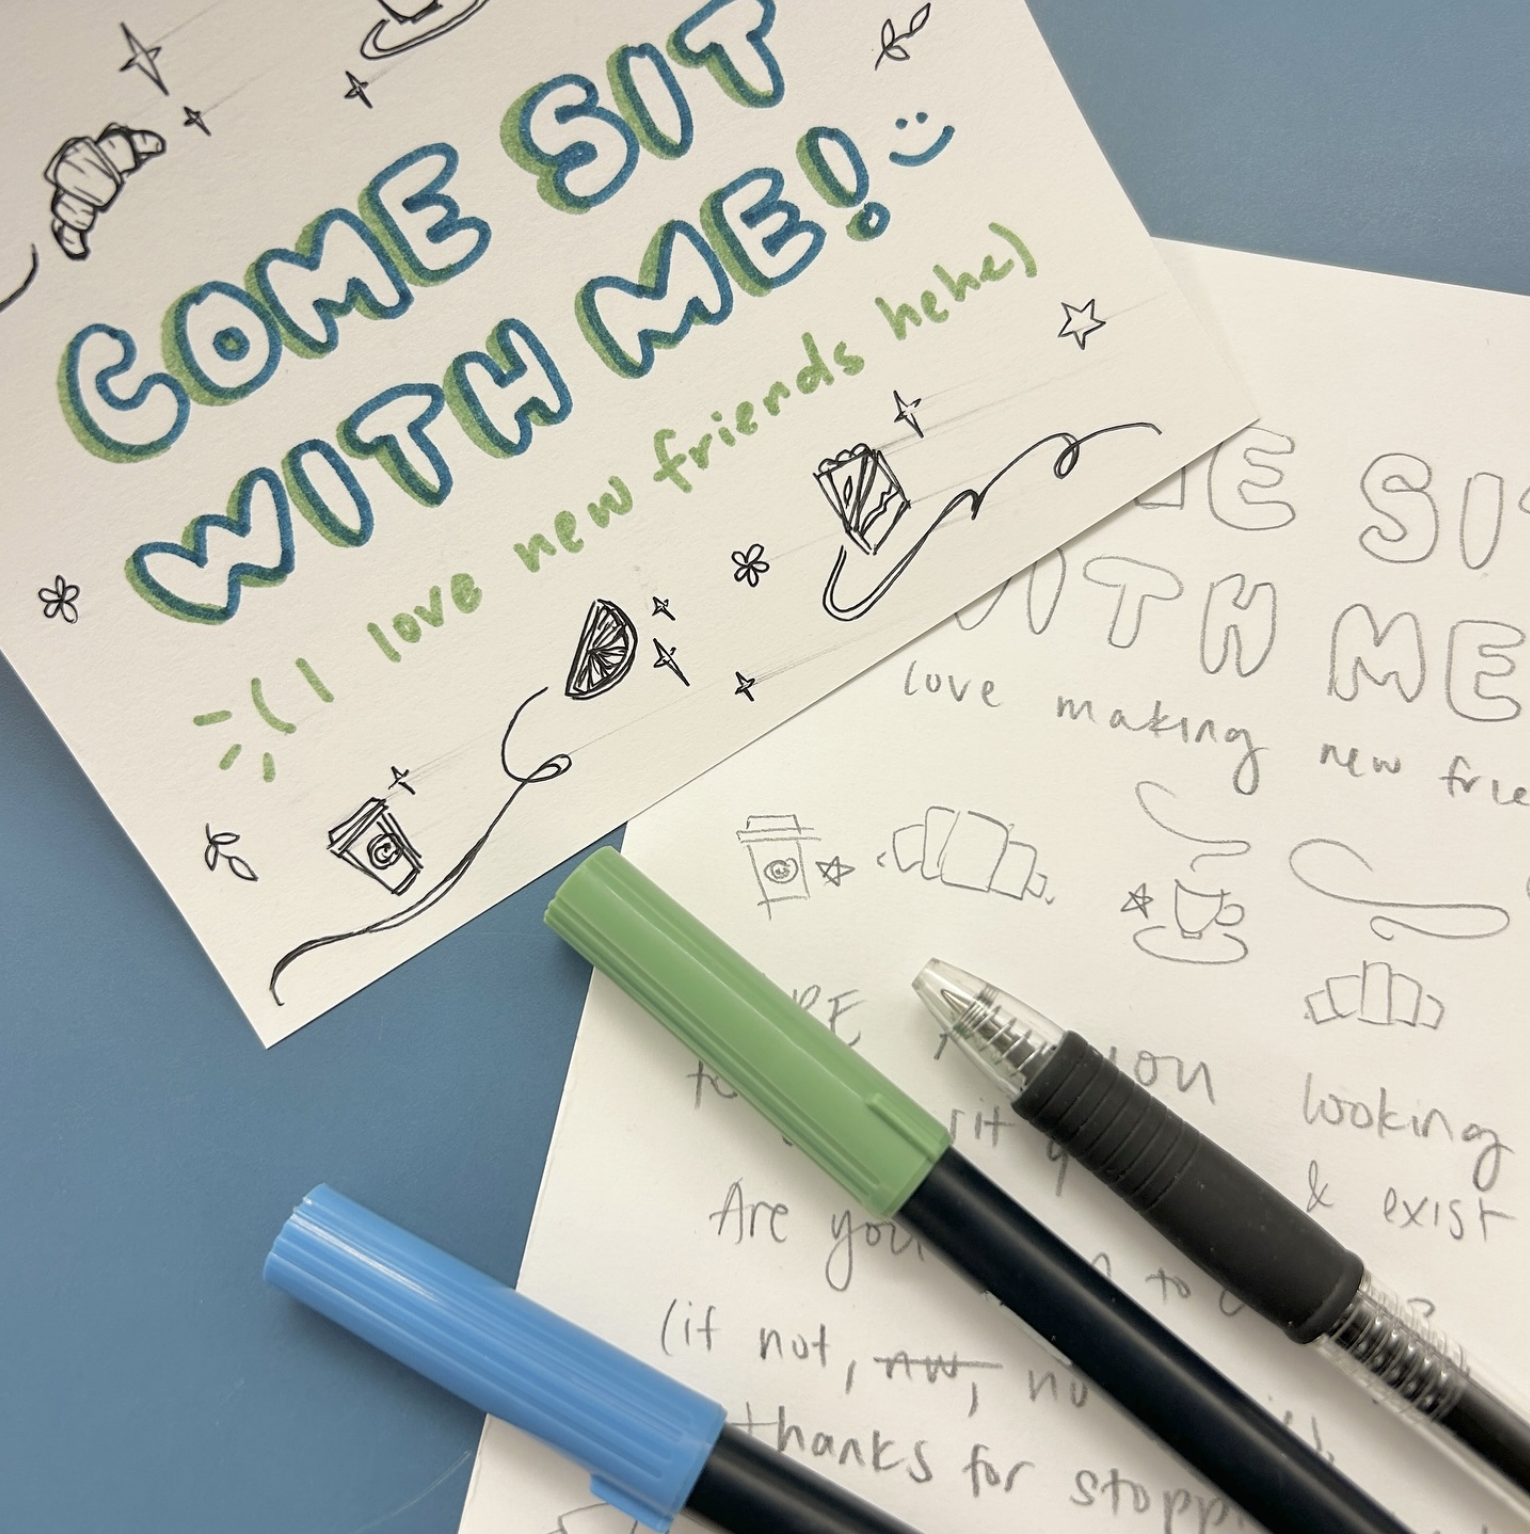 COME SIT
WITH ME! :)
(I love new friends hehe)
SI
WITH ME
love making new frie
you looking
& exist
Are you to
(if not, nw, no
thanks for stopp